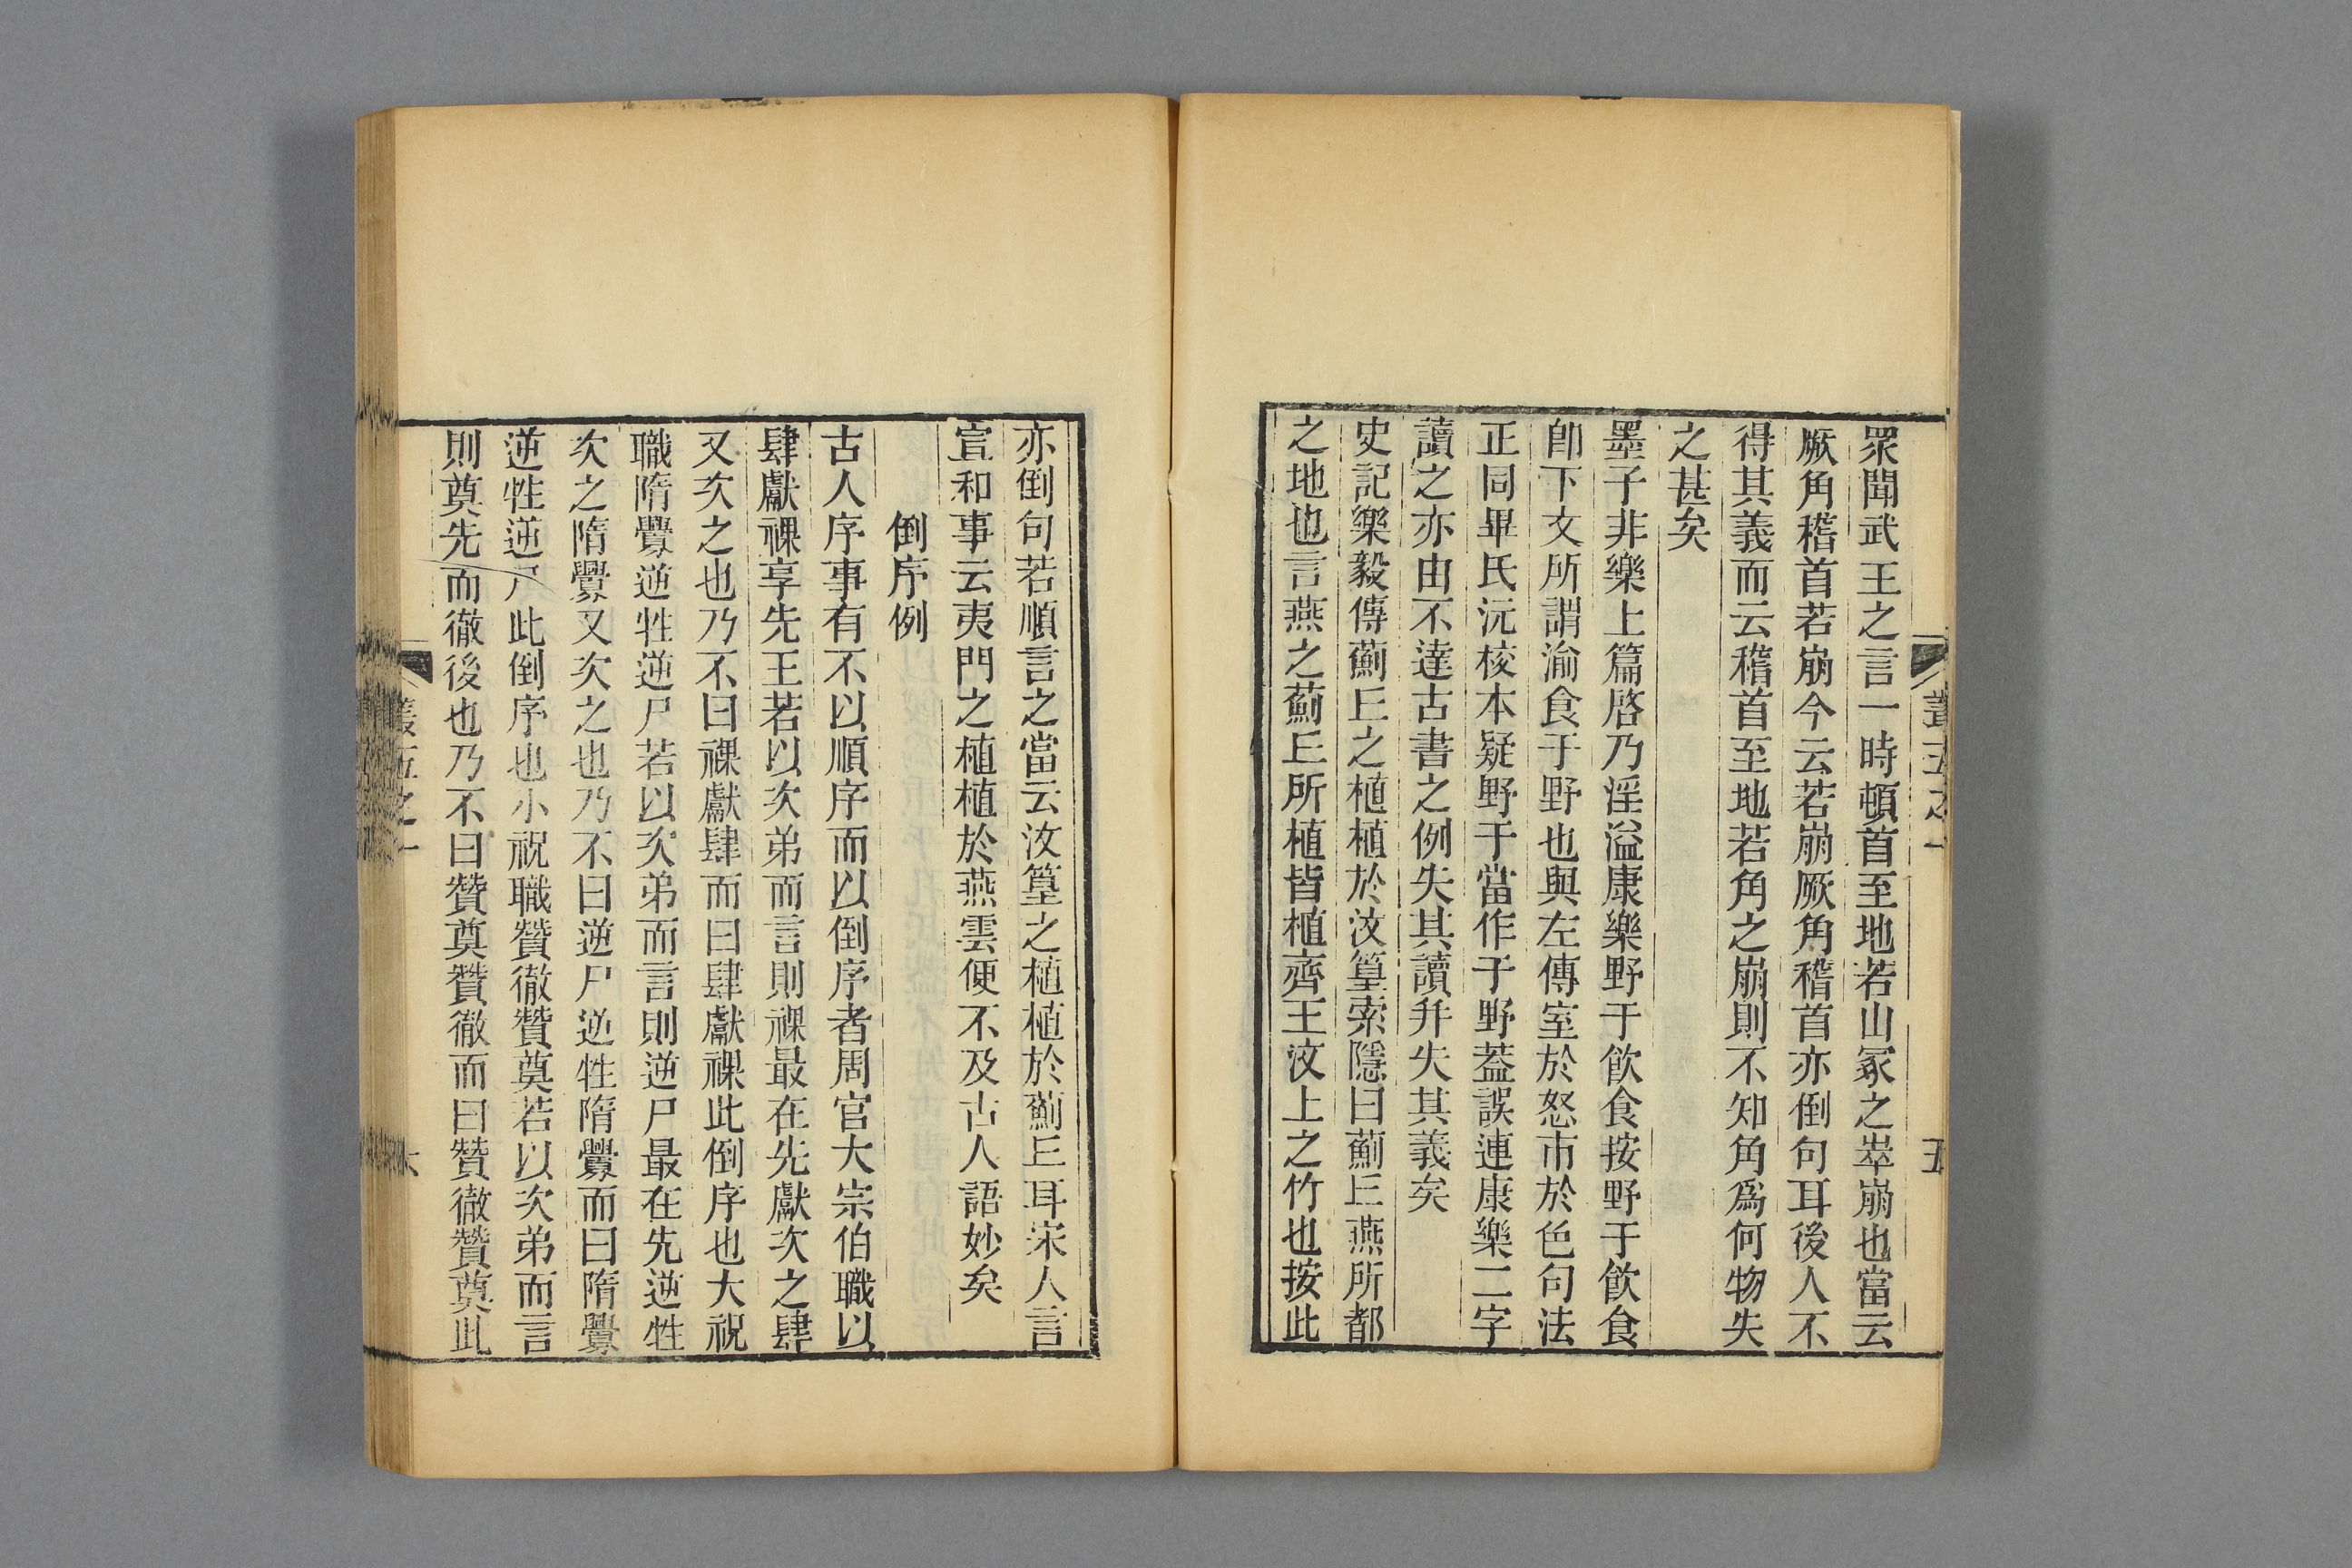 眾聞武王之言一時頓首至地若山冢之崒崩也當云
厥角稽首若崩今云若崩厥角稽首亦倒句耳後人不
得其義而云稽首至地若角之崩則不知角爲何物失
之甚矣
墨子非樂上篇啓乃淫溢康樂野于飮食按野于飮食
卽下文所謂渝食于野也與左傳室於怒市於色句法
正同畢氏沅校本疑野于當作于野葢誤連康樂二字
讀之亦由不達古書之例失其讀幷失其義矣
史記樂毅傳薊丘之植植於汶篁索隱曰薊丘燕所都
之地也言燕之薊丘所植皆植齊王汶上之竹也按此
亦倒句若順言之當云汶篁之植植於薊丘耳宋人言
宣和事云夷門之植植於燕雲便不及古人語妙矣
倒序例
古人序事有不以順序而以倒序者周官大宗伯職以
肆獻祼享先王若以次弟而言則祼最在先獻次之肆
又次之也乃不曰祼獻肆而曰肆獻祼此倒序也大祝
職隋釁逆牲逆尸若以次弟而言則逆尸最在先逆牲
次之隋釁又次之也乃不曰逆尸逆牲隋釁而曰隋釁
逆牲逆尸此倒序也小祝職贊徹贊奠若以次弟而言
則奠先而徹後也乃不曰贊奠贊徹而曰贊徹贊奠此